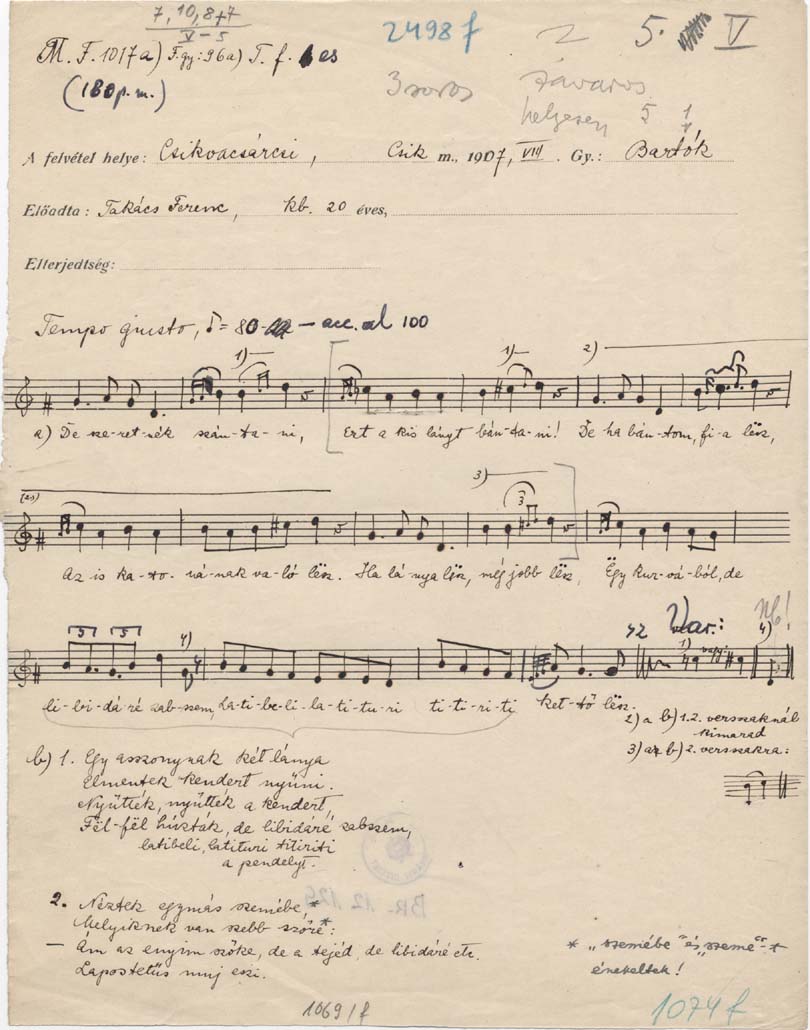 7, 10, 8+7
V-5
2498 f
2
5.
V
M. F. 1017a) F.gy: 96a) T. f. es
(180 p.m.)
3 soros
helyesen 5 1
A felvétel helye: Csikvacsárcsi, Csik m., 1907, VIII. Gy.: Bartók
Előadta: Takács Ferenc, kb. 20 éves,
Elterjedtség:
Tempo giusto, = 80 — acc. al 100
1) 1) 2)
a) De sze-ret-nék szán-ta-ni, Ezt a kis lányt bán-ta-ni! De ha bán-tom, fi-a lësz,
3)
3
Az is ka-to-ná-nak va-ló lësz. Ha lá-nya lësz, még jobb lësz, Ëgy kur-vá-ból, de
Var:
Nb!
5 5 4) 42 1) vagy: 4)
li-bi-dá-ré zab-szem, La-ti-be-li-la-ti-tu-ri ti-ti-ri-ti ket-tő lësz.
2) a b) 1.2. versszaknál
kimarad
3) a b) 2. versszakra:
b) 1. Egy asszonynak két lánya
Elmentek kendert nyüni.
Nyűtték, nyűtték a kendert,
Fël-fël húzták, de libidáré zabszem,
latibeli, latituri titiriti
a pendelyt.
BR. 12.129
2. Néztek egymás szemébe,*
Melyiknek van szebb szőre*:
— Ám az enyim szőke, de a tejéd, de libidáré etc.
Lapostetűs muj eszi.
* "szemébe" és "szeme"
énekeltek!
1069/f
1074 f